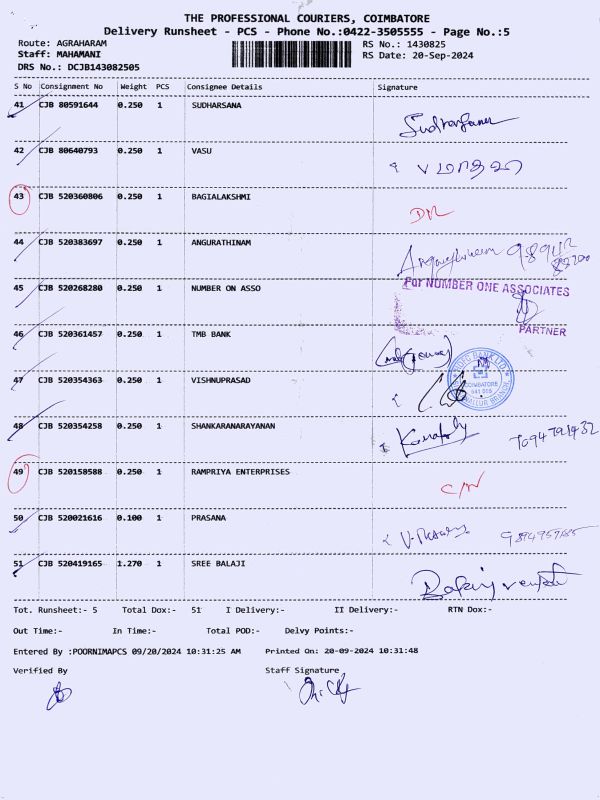 THE PROFESSIONAL COURIERS, COIMBATORE
Delivery Runsheet - PCS - Phone No.:0422-3505555 - Page No.:5
Route: AGRAHARAM RS No.: 1430825
Staff: MAHAMANI RS Date: 20-Sep-2024
DRS No.: DCJB143082505
S No Consignment No Weight PCS Consignee Details Signature
41 CJB 80591644 0.250 1 SUDHARSANA
42 CJB 80640793 0.250 1 VASU
43 CJB 520360806 0.250 1 BAGIALAKSHMI
44 CJB 520383697 0.250 1 ANGURATHINAM
45 CJB 520268280 0.250 1 NUMBER ON ASSO For NUMBER ONE ASSOCIATES
PARTNER
46 CJB 520361457 0.250 1 TMB BANK
47 CJB 520354363 0.250 1 VISHNUPRASAD COIMBATORE
48 CJB 520354258 0.250 1 SHANKARANARAYANAN
49 CJB 520158588 0.250 1 RAMPRIYA ENTERPRISES C/N
50 CJB 520021616 0.100 1 PRASANA
51 CJB 520419165 1.270 1 SREE BALAJI
Tot. Runsheet:- 5 Total Dox:- 51 I Delivery:- II Delivery:- RTN Dox:-
Out Time:- In Time:- Total POD:- Delvy Points:-
Entered By :POORNIMAPCS 09/20/2024 10:31:25 AM Printed On: 20-09-2024 10:31:48
Verified By Staff Signature